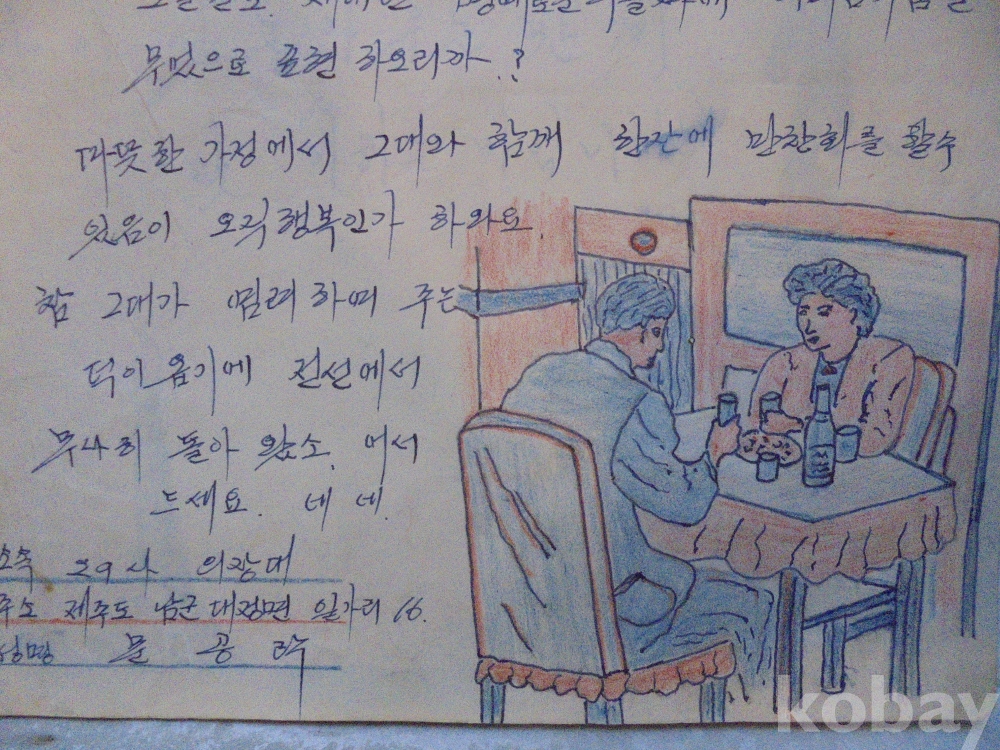 무엇으로 표현 하오리까.?
따뜻한 가정에서 그대와 함께 한잔에 만찬회를 할수
있음이 오직 행복인가 하와요.
참 그대가 염려하며 주는
덕이옵기에 전선에서
무사히 돌아 왔소. 어서
드세요. 네 네.
소속 29사 의장대
주소 제주도 남군 대정면 일과리 16.
성명 문 공
kobay